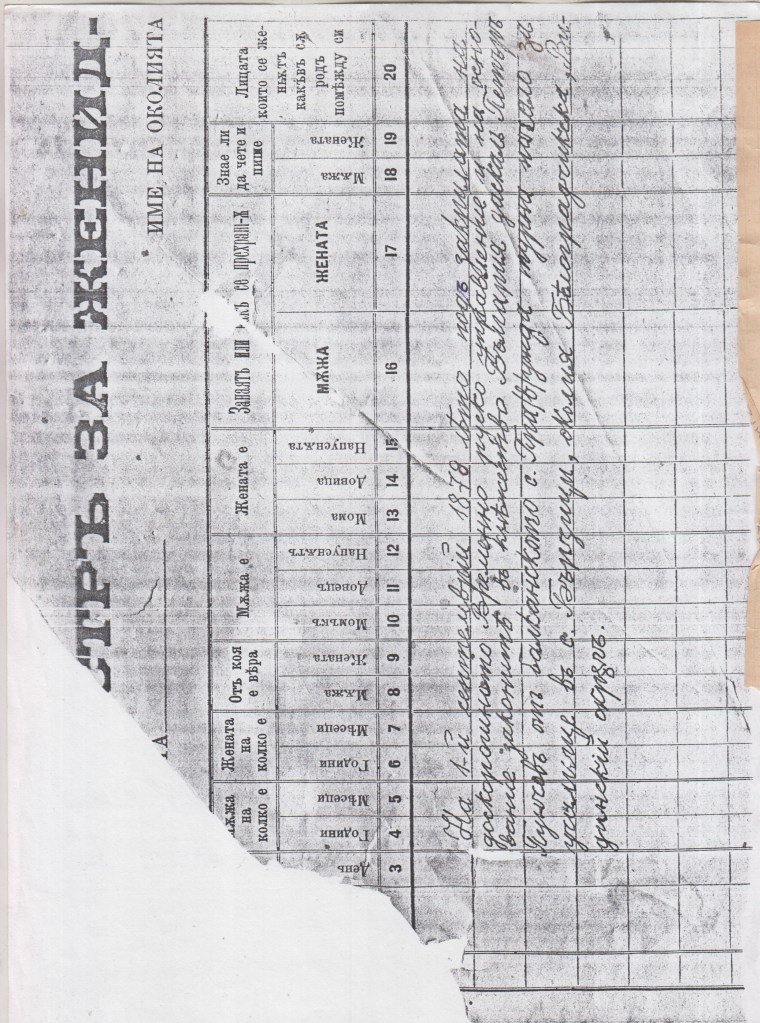 СТРЪ ЗА ЖЕНИД-
ИМЕ НА ОКОЛИЯТА
Мѫжа на колко е
Жената на колко е
Отъ коя е вѣра
Мѫжа е
Жената е
Занаятъ или какъ се прехран-ѫ
Знае ли да чете и пише
Лицата които се женѭтъ какъвъ сѫ родъ помѣжду си
День
Години
Мѣсеци
Години
Мѣсеци
Мѫжа
Жената
Момъкъ
Довецъ
Напуснѫтъ
Мома
Довица
Напуснѫта
МѪЖА
ЖЕНАТА
Мѫжа
Жената
3 4 5 6 7 8 9 10 11 12 13 14 15 16 17 18 19 20
На 1-й септемврий 1878 лѣто подъ закрилата на
доскорошното Временно руско управление и на осно-
вание законитѣ въ княжество България даскалъ Петъръ
Пунчовъ отъ балканското с. турна начало за
училище въ с. Бърчици, околия Бѣлоградчикска, Ви-
динский окрѫгъ.